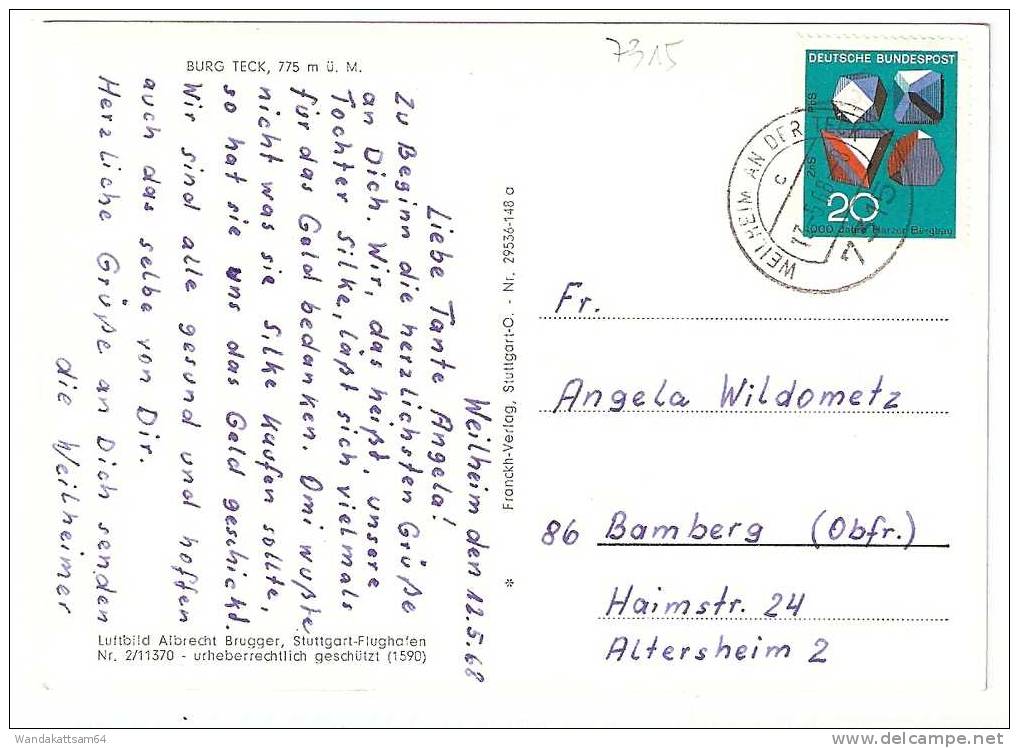 BURG TECK, 775 m ü. M.
Weilheim den 12.5.68
Liebe Tante Angela!
Zu Beginn die herzlichsten Grüße
an Dich. Wir, das heißt, unsere
Tochter Silke, läßt sich vielmals
für das Geld bedanken. Omi wußte
nicht was sie Silke kaufen sollte,
so hat sie uns das Geld geschickt.
Wir sind alle gesund und hoffen
auch das selbe von Dir.
Herzliche Grüße an Dich senden
die Weilheimer
Luftbild Albrecht Brugger, Stuttgart-Flughafen
Nr. 2/11370 - urheberrechtlich geschützt (1590)
Franckh-Verlag, Stuttgart-O. - Nr. 29536-148 a
*
7315
DEUTSCHE BUNDESPOST
PbS
ZnS
20
1000 Jahre Harzer Bergbau
WEILHEIM AN DER TECK
c
7315
WEILHEIM
Fr.
Angela Wildometz
86 Bamberg (Obfr.)
Haimstr. 24
Altersheim 2
Wandakattsam64
delcampe.net